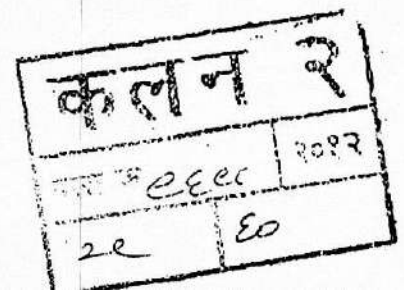 कलन २
९६९९ २०१२
२९ ६०